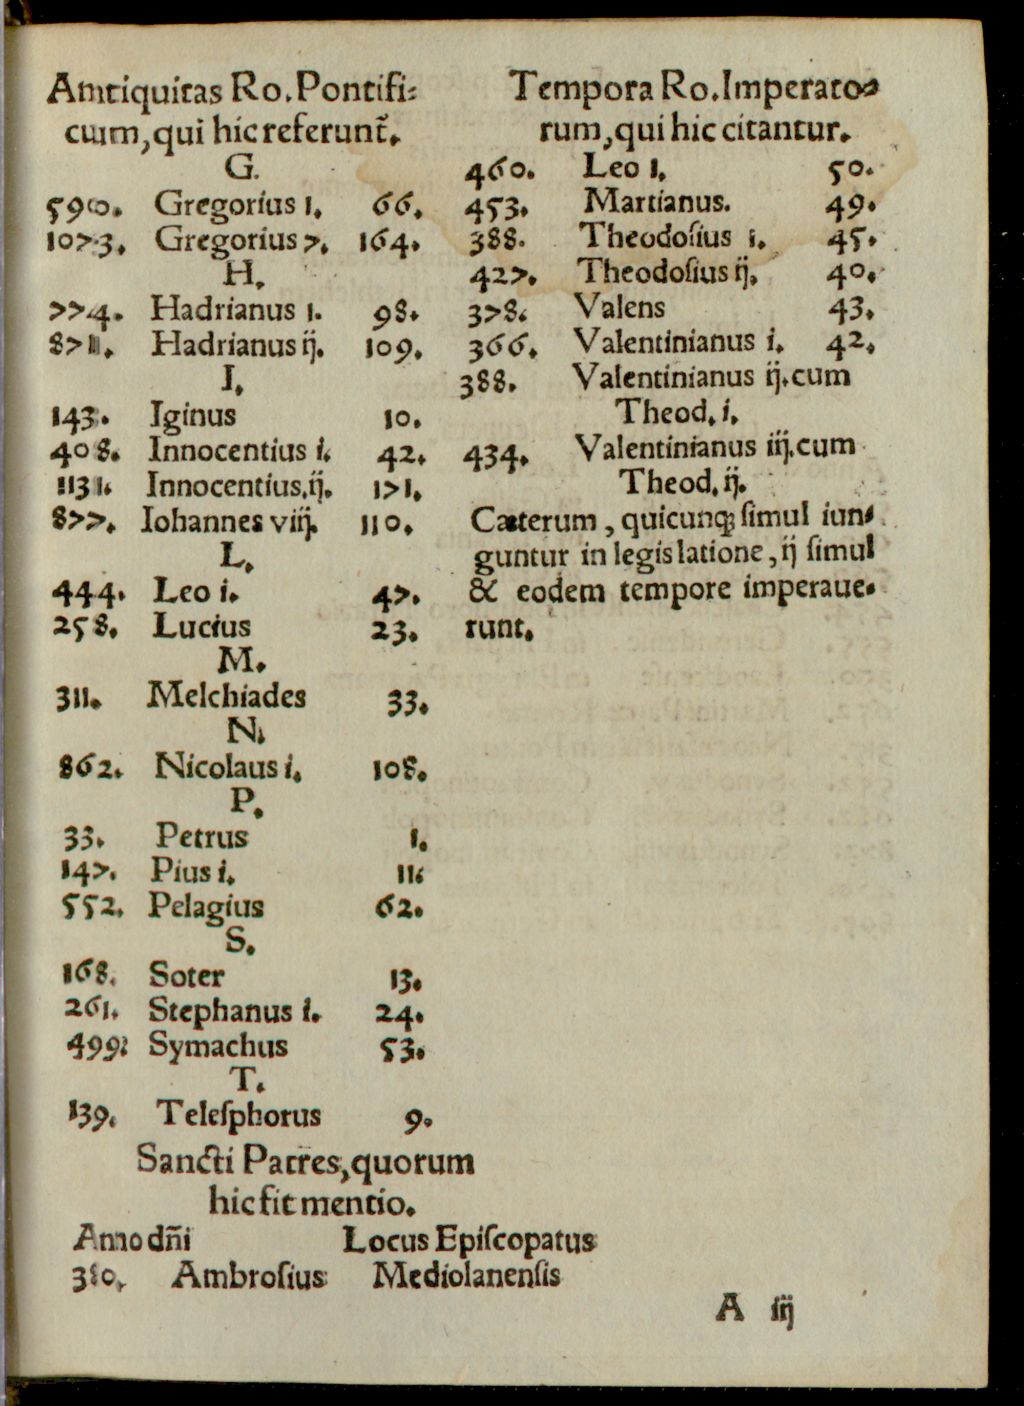 Antiquitas Ro. Pontifi⸗
cum, qui hic referunt̃.
G.
590. Gregorius 1. 66.
1073. Gregorius 7. 164.
H.
774. Hadrianus 1. 98.
Hadrianus ij. 109.
I.
143. Iginus 10.
408. Innocentius i. 42.
1131. Innocentius. ij. 171.
877. Iohannes viij. 110.
L.
444. Leo i. 47.
258. Lucius 23.
M.
311. Melchiades 33.
N.
862. Nicolaus i. 108.
P.
33. Petrus 1.
147. Pius i. 11.
552. Pelagius 62.
S.
168. Soter 13.
261. Stephanus i. 24.
499. Symachus 53.
T.
139. Telesphorus 9.
Tempora Ro. Imperato⸗
rum, qui hic citantur.
460. Leo 1. 50.
453. Martianus. 49.
388. Theodosius i. 45.
427. Theodosius ij. 40.
378. Valens 43.
366. Valentinianus i. 42.
388. Valentinianus ij. cum
Theod. i.
434. Valentinianus iij. cum
Theod. ij.
Cæterum, quicunq; simul iun⸗
guntur in legislatione, ij simul
& eodem tempore imperaue⸗
runt.
Sancti Patres, quorum
hic fit mentio.
Anno dñi Locus Episcopatus
380. Ambrosius Mediolanensis
A iij